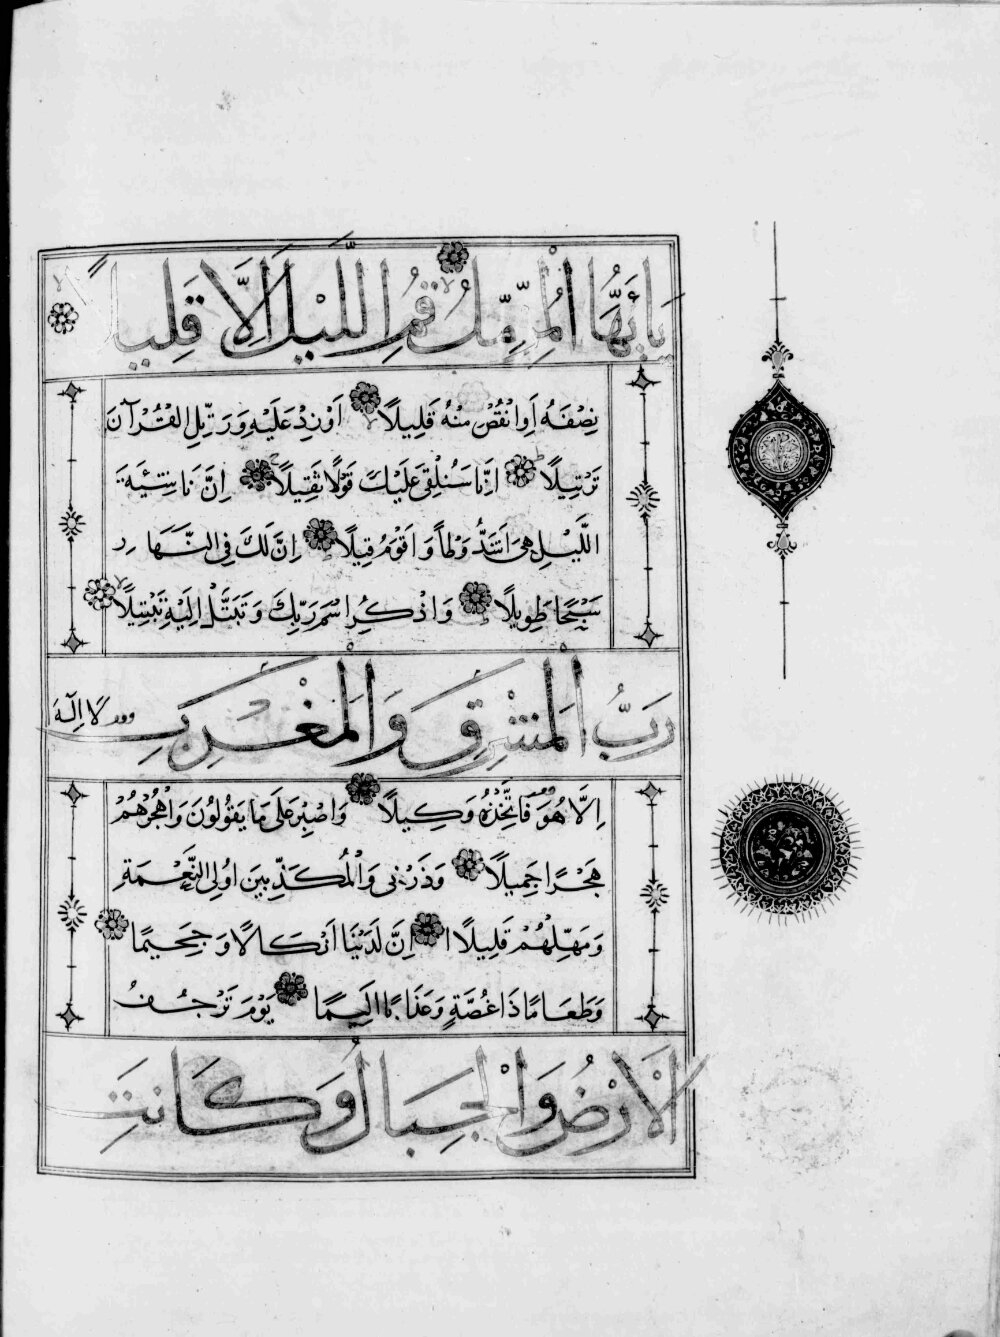 يَاأَيُّهَا الْمُزَّمِّلُ قُمِ اللَّيْلَ إِلَّا قَلِيلًا
نِصْفَهُ أَوِ انْقُصْ مِنْهُ قَلِيلًا أَوْ زِدْ عَلَيْهِ وَرَتِّلِ الْقُرْآنَ
تَرْتِيلًا إِنَّا سَنُلْقِي عَلَيْكَ قَوْلًا ثَقِيلًا إِنَّ نَاشِئَةَ
اللَّيْلِ هِيَ أَشَدُّ وَطْأً وَأَقْوَمُ قِيلًا إِنَّ لَكَ فِي النَّهَارِ
سَبْحًا طَوِيلًا وَاذْكُرِ اسْمَ رَبِّكَ وَتَبَتَّلْ إِلَيْهِ تَبْتِيلًا
رَبُّ الْمَشْرِقِ وَالْمَغْرِبِ لَا إِلَهَ
إِلَّا هُوَ فَاتَّخِذْهُ وَكِيلًا وَاصْبِرْ عَلَى مَا يَقُولُونَ وَاهْجُرْهُمْ
هَجْرًا جَمِيلًا وَذَرْنِي وَالْمُكَذِّبِينَ أُولِي النَّعْمَةِ
وَمَهِّلْهُمْ قَلِيلًا إِنَّ لَدَيْنَا أَنْكَالًا وَجَحِيمًا
وَطَعَامًا ذَا غُصَّةٍ وَعَذَابًا أَلِيمًا يَوْمَ تَرْجُفُ
الْأَرْضُ وَالْجِبَالُ وَكَانَتِ